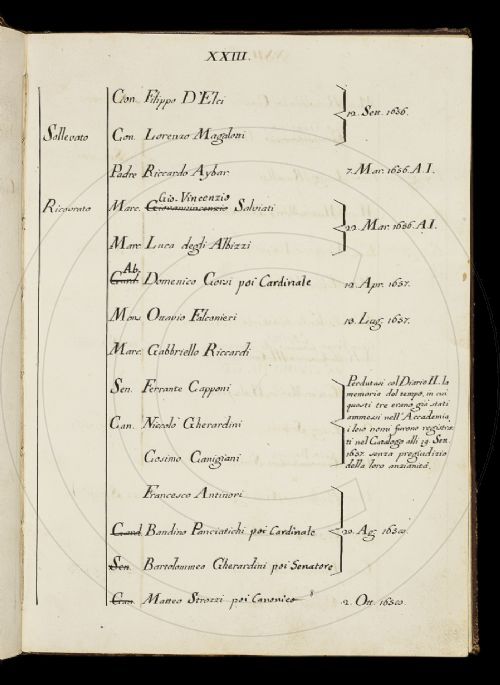 XXIII.
Con. Filippo D'Elci
12. Sett. 1656.
Sollevato Con. Lorenzo Magalotti
Padre Riccardo Aybar 7. Mar. 1656. A.I.
Gio. Vincenzio
Ricovrato Marc. Giovanvincenzio Salviati
22. Mar. 1656. A.I.
Marc. Luca degli Albizzi
Ab.
Domenico Corsi poi Cardinale 12. Apr. 1657.
Mons. Ottavio Falconieri 18. Lug. 1657.
Marc. Gabbriello Riccardi
Sen. Ferrante Capponi
Can. Niccolò Gherardini
Cosimo Canigiani
Perdutasi col Diario II. la
memoria del tempo, in cui
questi tre erano già stati
ammessi nell'Accademia
i loro nomi furono registra-
ti nel Catalogo alli 19. Sett.
1657. senza pregiudizio
della loro anzianità.
Francesco Antinori
Bandino Panciatichi poi Cardinale 20. Ag. 1650.
Sen. Bartolommeo Gherardini poi Senatore
Can. Matteo Strozzi poi Canonico 2. Ott. 1650.